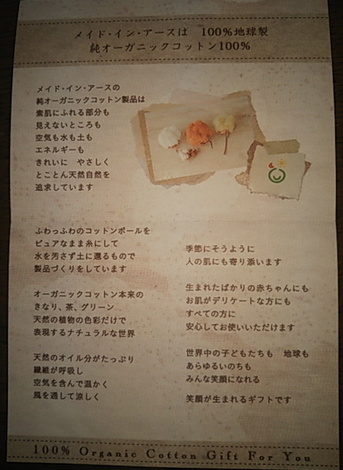 メイド・イン・アースは　100%地球製
純オーガニックコットン100%
メイド・イン・アースの
純オーガニックコットン製品は
素肌にふれる部分も
見えないところも
空気も水も土も
エネルギーも
きれいに　やさしく
とことん天然自然を
追求しています
ふわっふわのコットンボールを
ピュアなまま糸にして
水を汚さず土に還るもので
製品づくりをしています
オーガニックコットン本来の
きなり、茶、グリーン
天然の植物の色彩だけで
表現するナチュラルな世界
天然のオイル分がたっぷり
繊維が呼吸し
空気を含んで温かく
風を通して涼しく
季節にそうように
人の肌にも寄り添います
生まれたばかりの赤ちゃんにも
お肌がデリケートな方にも
すべての方に
安心してお使いいただけます
世界中の子どもたちも　地球も
あらゆるいのちも
みんな笑顔になれる
笑顔が生まれるギフトです
100% Organic Cotton Gift For You